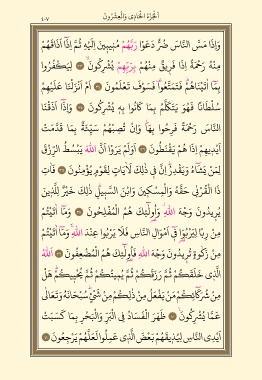 الجزء الحادي والعشرون
٤٠٧
وَإِذَا مَسَّ النَّاسَ ضُرٌّ دَعَوْا رَبَّهُمْ مُنِيبِينَ إِلَيْهِ ثُمَّ إِذَٓا أَذَاقَهُمْ
مِنْهُ رَحْمَةً إِذَا فَرِيقٌ مِنْهُمْ بِرَبِّهِمْ يُشْرِكُونَ ﴿٣٣﴾ لِيَكْفُرُوا
بِمَٓا أٰتَيْنَاهُمْ فَتَمَتَّعُوا فَسَوْفَ تَعْلَمُونَ ﴿٣٤﴾ أَمْ أَنْزَلْنَا عَلَيْهِمْ
سُلْطَانًا فَهُوَ يَتَكَلَّمُ بِمَا كَانُوا بِهِ يُشْرِكُونَ ﴿٣٥﴾ وَإِذَٓا أَذَقْنَا
النَّاسَ رَحْمَةً فَرِحُوا بِهَا وَإِنْ تُصِبْهُمْ سَيِّئَةٌ بِمَا قَدَّمَتْ
أَيْدِيهِمْ إِذَا هُمْ يَقْنَطُونَ ﴿٣٦﴾ أَوَلَمْ يَرَوْا أَنَّ اللّٰهَ يَبْسُطُ الرِّزْقَ
لِمَنْ يَشَٓاءُ وَيَقْدِرُ إِنَّ فِي ذٰلِكَ لَأٰيَاتٍ لِقَوْمٍ يُؤْمِنُونَ ﴿٣٧﴾ فَأٰتِ
ذَا الْقُرْبٰى حَقَّهُ وَالْمِسْكِينَ وَابْنَ السَّبِيلِ ذٰلِكَ خَيْرٌ لِلَّذِينَ
يُرِيدُونَ وَجْهَ اللّٰهِ وَأُولٰٓئِكَ هُمُ الْمُفْلِحُونَ ﴿٣٨﴾ وَمَٓا أٰتَيْتُمْ
مِنْ رِبًا لِيَرْبُوَا فِٓي أَمْوَالِ النَّاسِ فَلَا يَرْبُوا عِنْدَ اللّٰهِ وَمَٓا أٰتَيْتُمْ
مِنْ زَكٰوةٍ تُرِيدُونَ وَجْهَ اللّٰهِ فَأُولٰٓئِكَ هُمُ الْمُضْعِفُونَ ﴿٣٩﴾ اَللّٰهُ
الَّذِي خَلَقَكُمْ ثُمَّ رَزَقَكُمْ ثُمَّ يُمِيتُكُمْ ثُمَّ يُحْيِيكُمْ هَلْ
مِنْ شُرَكَٓائِكُمْ مَنْ يَفْعَلُ مِنْ ذٰلِكُمْ مِنْ شَيْءٍ سُبْحَانَهُ وَتَعَالٰى
عَمَّا يُشْرِكُونَ ﴿٤٠﴾ ظَهَرَ الْفَسَادُ فِي الْبَرِّ وَالْبَحْرِ بِمَا كَسَبَتْ
أَيْدِي النَّاسِ لِيُذِيقَهُمْ بَعْضَ الَّذِي عَمِلُوا لَعَلَّهُمْ يَرْجِعُونَ ﴿٤١﴾